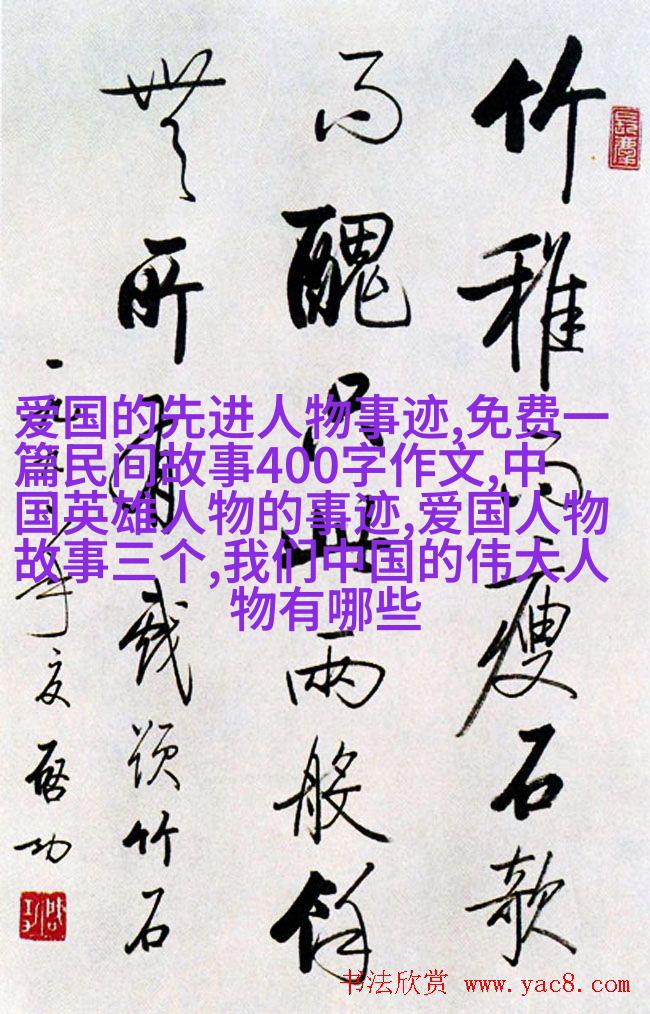 竹稚而瘦石欹
而醜只此兩般餘
無所有戲題竹石
年夏启功
爱国的先进人物事迹,免费一
篇民间故事400字作文,中
国英雄人物的事迹,爱国人物
故事三个,我们中国的伟大人
物有哪些
书法欣赏 www.yac8.com